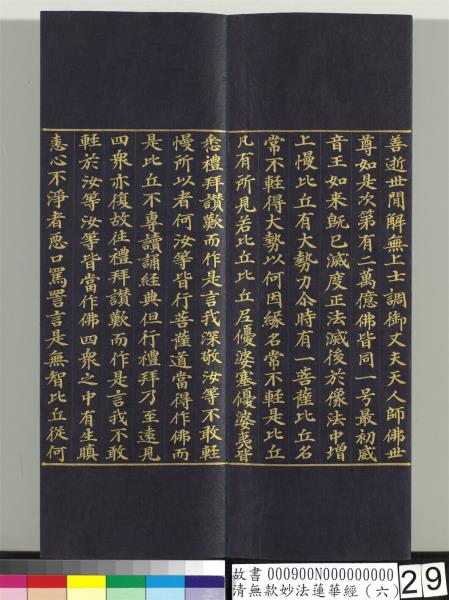 善逝世間解無上士調御丈夫天人師佛世
尊如是次第有二萬億佛皆同一号最初威
音王如来旣已滅度正法滅後於像法中增
上慢比丘有大勢力尒時有一菩薩比丘名
常不輕得大勢以何因緣名常不輕是比丘
凡有所見若比丘比丘尼優婆塞優婆夷皆
悉禮拜讃歎而作是言我深敬汝等不敢輕
慢所以者何汝等皆行菩薩道當得作佛而
是比丘不專讀誦經典但行禮拜乃至遠見
四衆亦復故往禮拜讃歎而作是言我不敢
輕於汝等汝等皆當作佛四衆之中有生瞋
恚心不淨者惡口罵詈言是無智比丘從何
故書 000900N000000000
清無款妙法蓮華經（六）
29